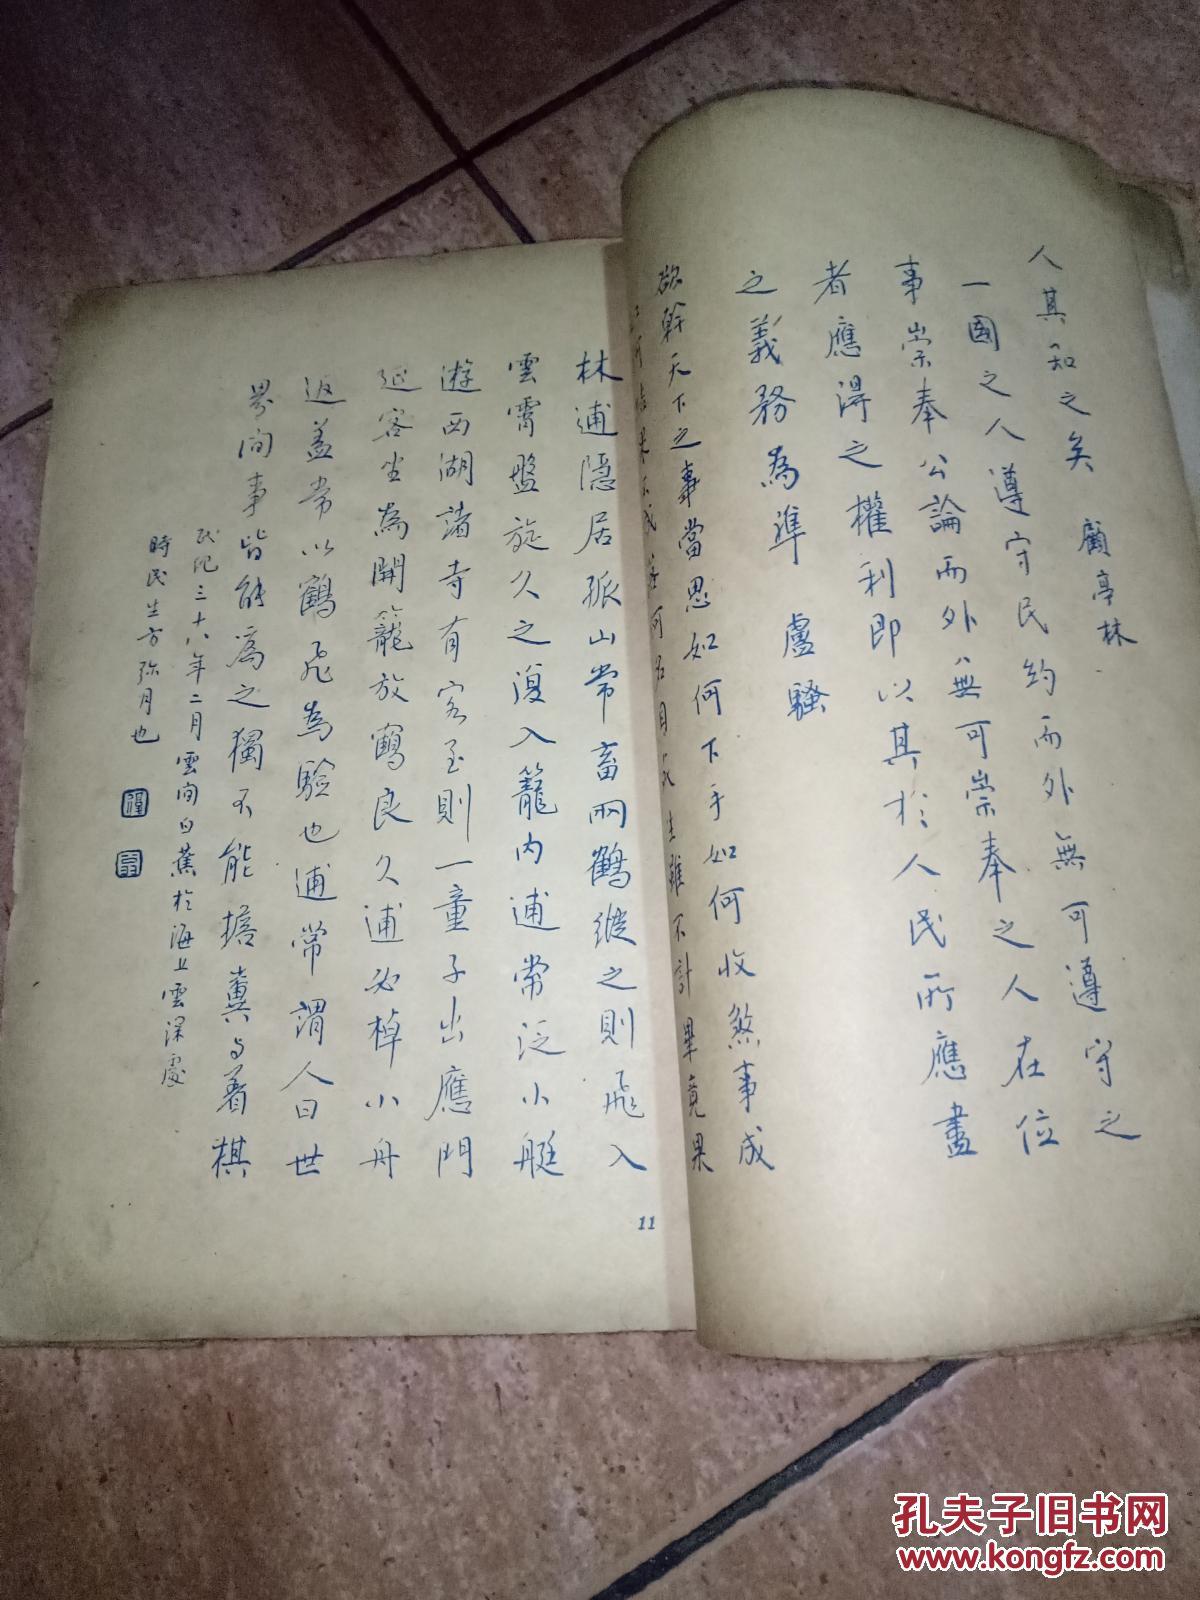 人其知之矣 顧亭林
一國之人遵守民約而外無可遵守之
事崇奉公論而外無可崇奉之人在位
者應得之權利即以其於人民所應盡
之義務為準 盧騷
欲幹天下之事當思如何下手如何收煞事成
如何結果不成
何名目
雖不計畢竟果
林逋隱居孤山常畜兩鶴縱之則飛入
雲霄盤旋久之復入籠內逋常泛小艇
遊西湖諸寺有客至則一童子出應門
延客坐為開籠放鶴良久逋必棹小舟
返蓋常以鶴飛為驗也逋常謂人曰世
界間事皆能為之獨不能擔糞與著棋
民紀三十八年二月雲間白蕉於海上雲深處
時民生方弥月也
11
孔夫子旧书网
www.kongfz.com